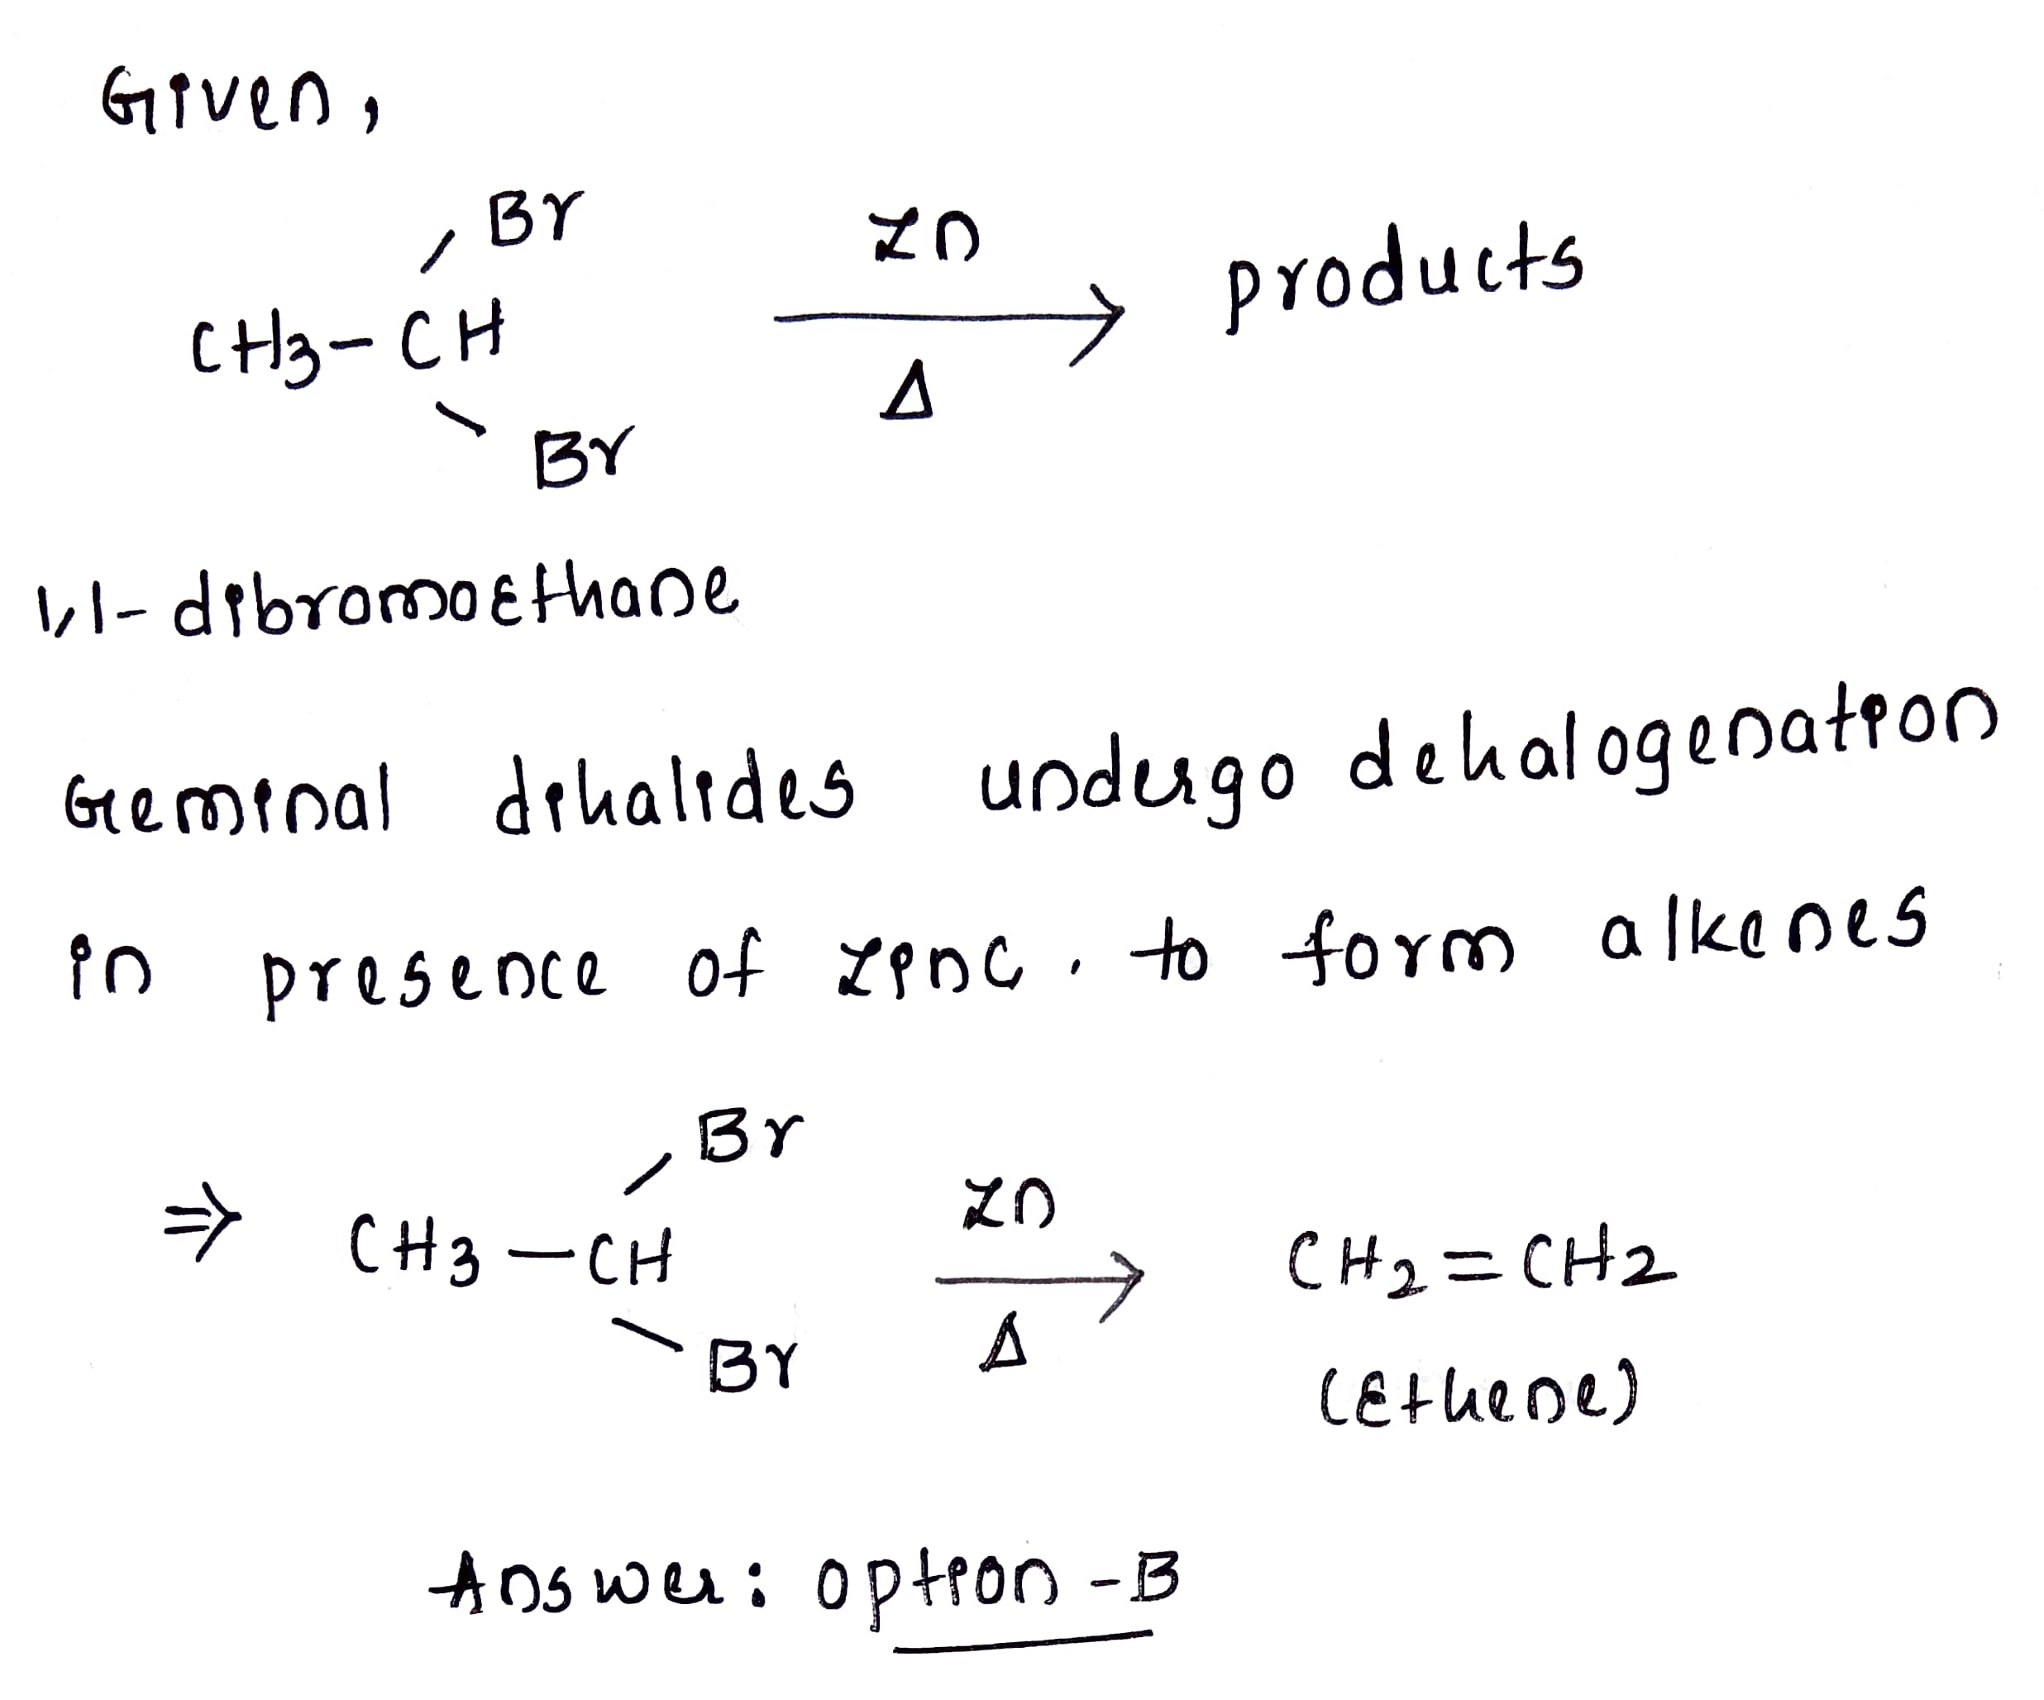 Given,
Br
Zn
products
CH3-CH
Δ
Br
1,1-dibromoEthane
Geminal dihalides undergo dehalogenation
in presence of zinc, to form alkenes
Br
Zn
⇒ CH3-CH
CH2=CH2
Δ
Br
(Ethene)
Answer: option-B